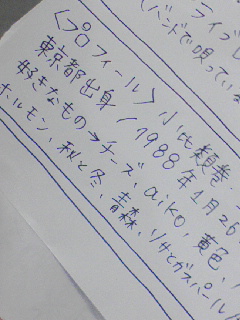 ライブ
(バンドで唄ってい
〈プロフィール〉小比類巻
東京都出身/1988年1月26
好きなもの→チーズ、aiko、黄色、
ホルモン、秋と冬、青森、リサとガスパール